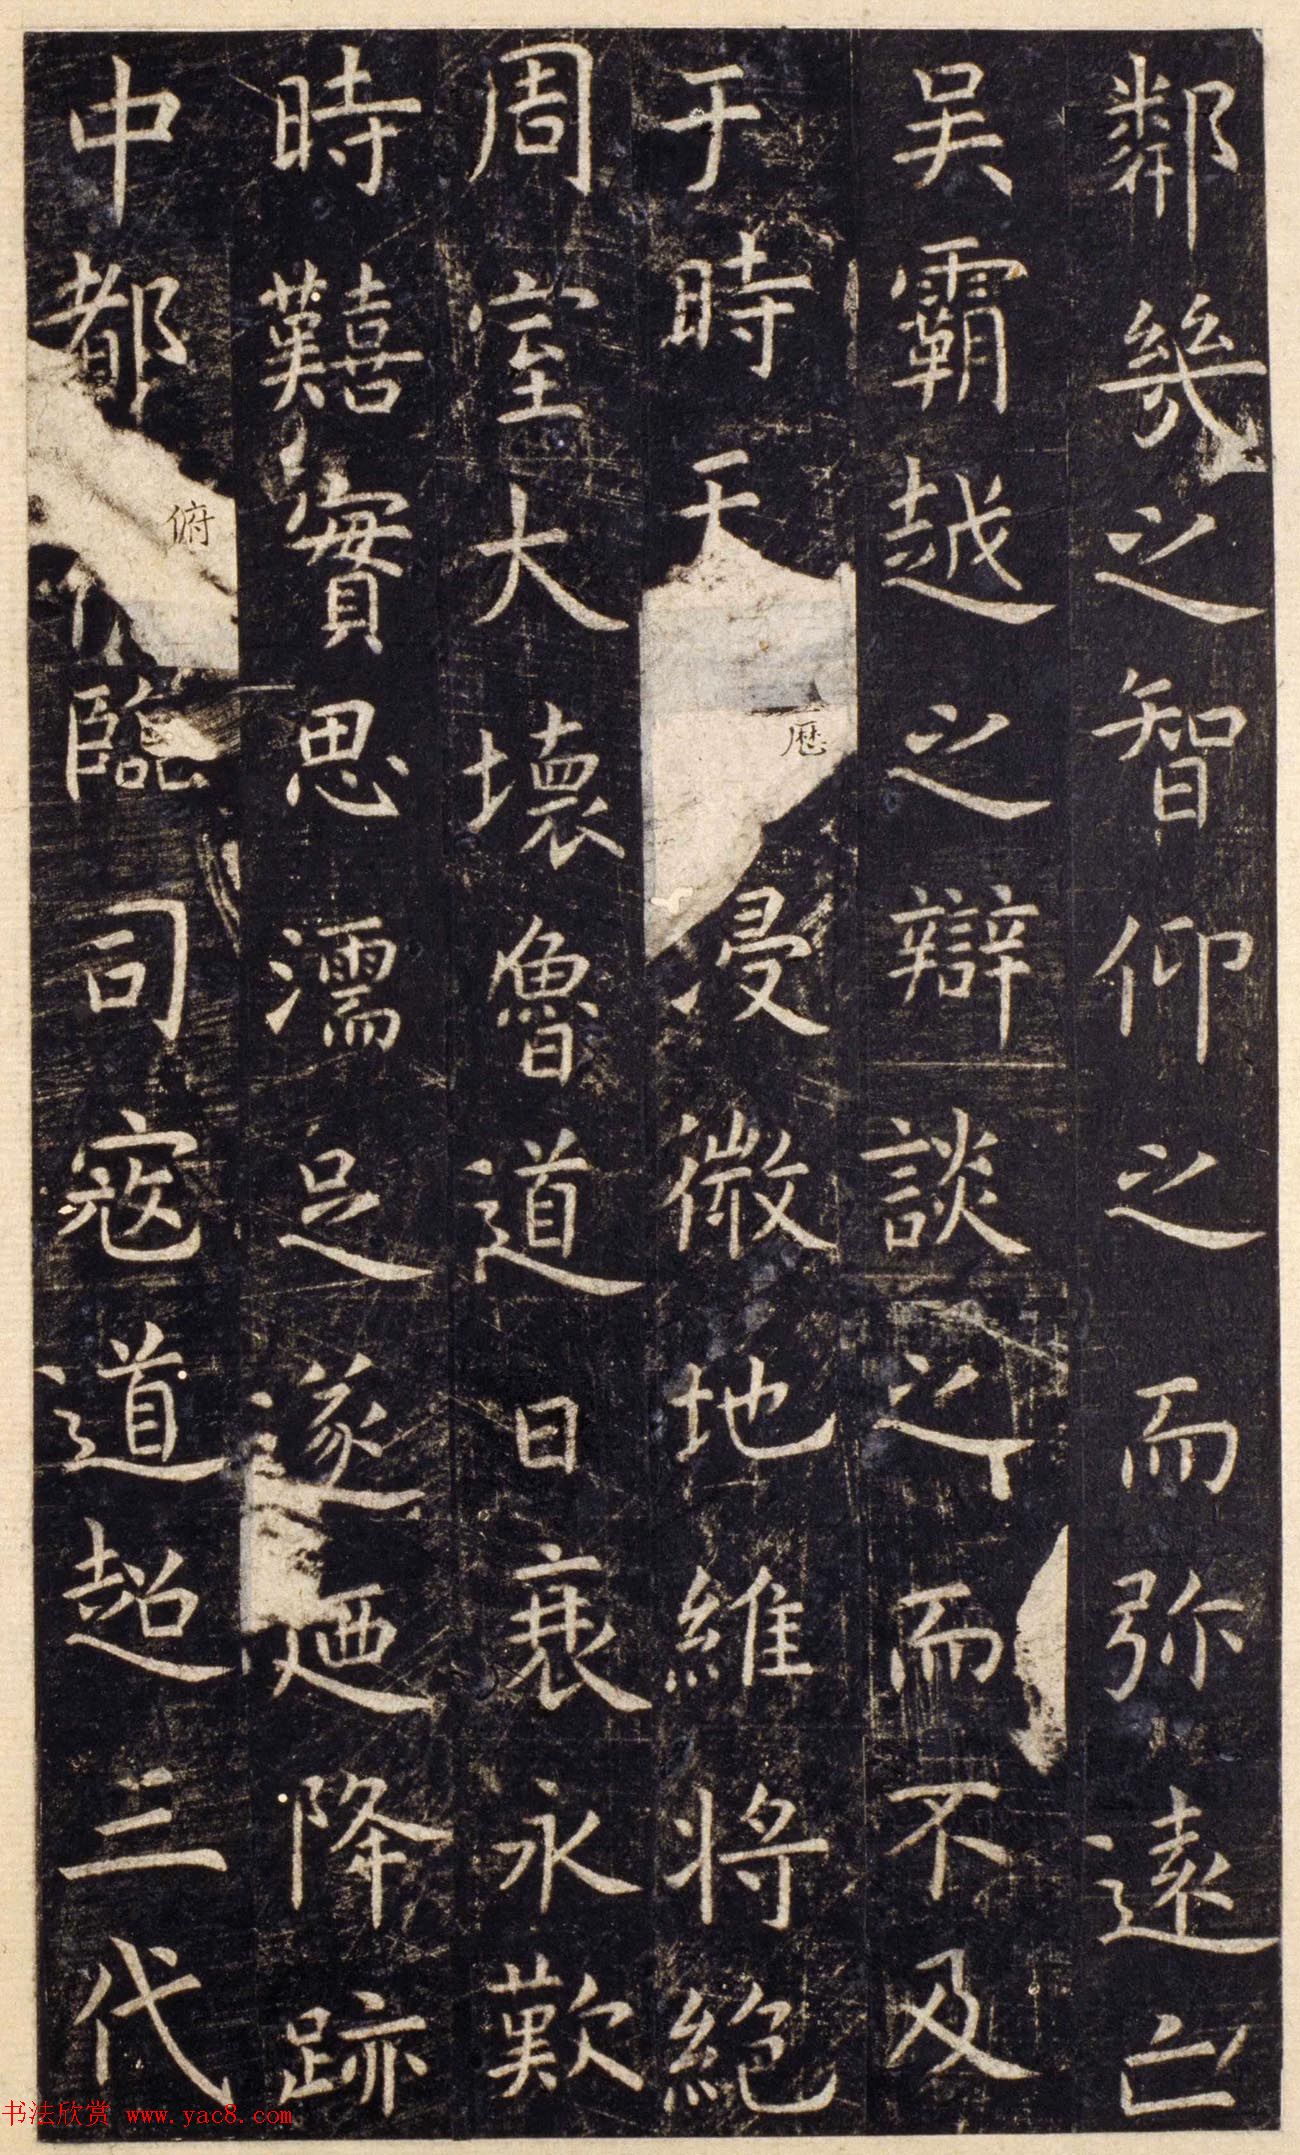 鄰幾之智仰之而弥遠亡
吴霸越之辯談之而不及
于時天厯浸微地維將絕
周室大壞魯道日衰永歎
時囏實思濡足遂迺降跡
中都俯臨司寇道超三代
书法欣赏 www.yac8.com